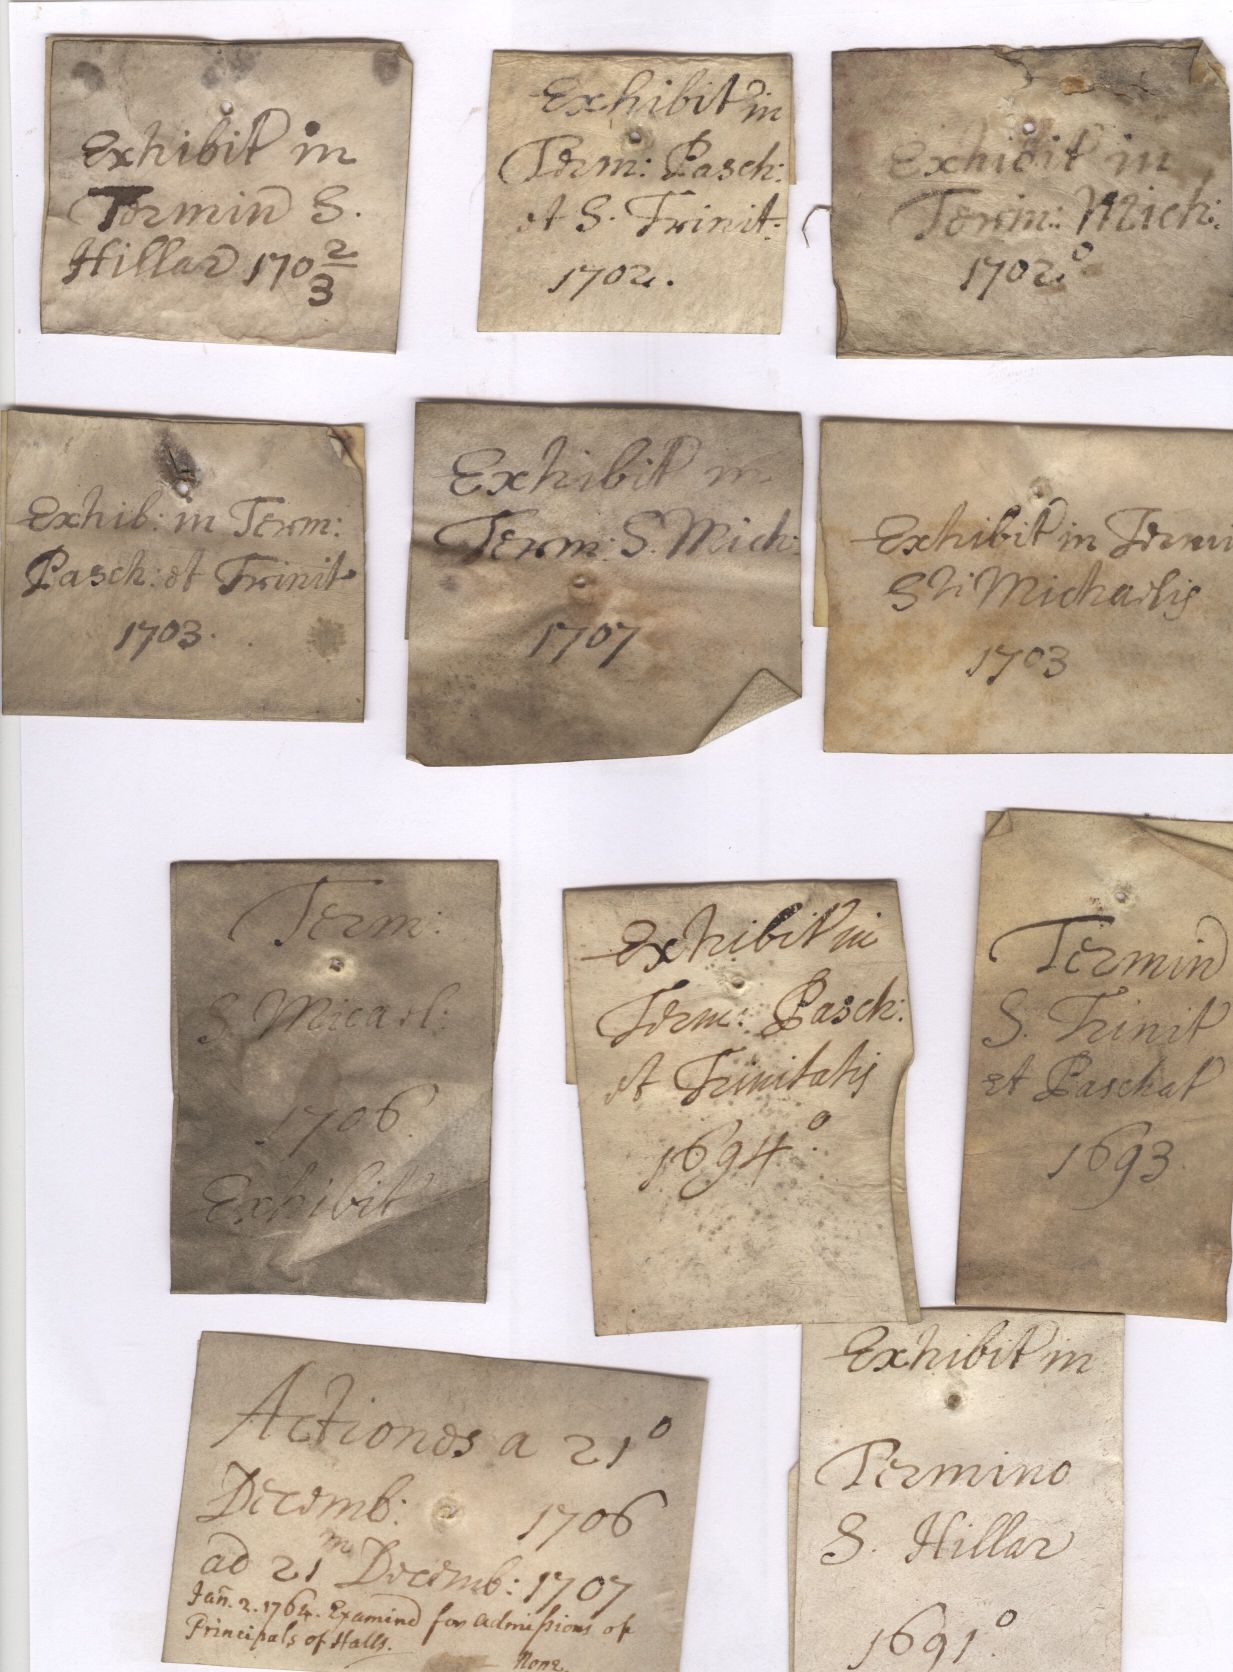 Exhibit in
Termin S.
Hillar 170 2/3
Exhibit in
Term: Pasch:
et S. Trinit:
1702.
Exhibit in
Term: Mich:
1702.º
Exhib: in Term:
Pasch: et Trinit
1703.
Exhibit in
Term: S. Mich:
1707
Exhibit in Termi
Sti Michaelis
1703
Term:
S. Micael:
1706.
Exhibit
Exhibit in
Term: Pasch:
et Trinitatis
1694º.
Termin
S. Trinit
et Paschat
1693.
Actiones a 21º
Decemb: 1706
ad 21m Decemb: 1707
Jan. 2. 1764. Examind for admissions of
Principals of Halls.
None.
Exhibit in
Termino
S. Hillar
1691º